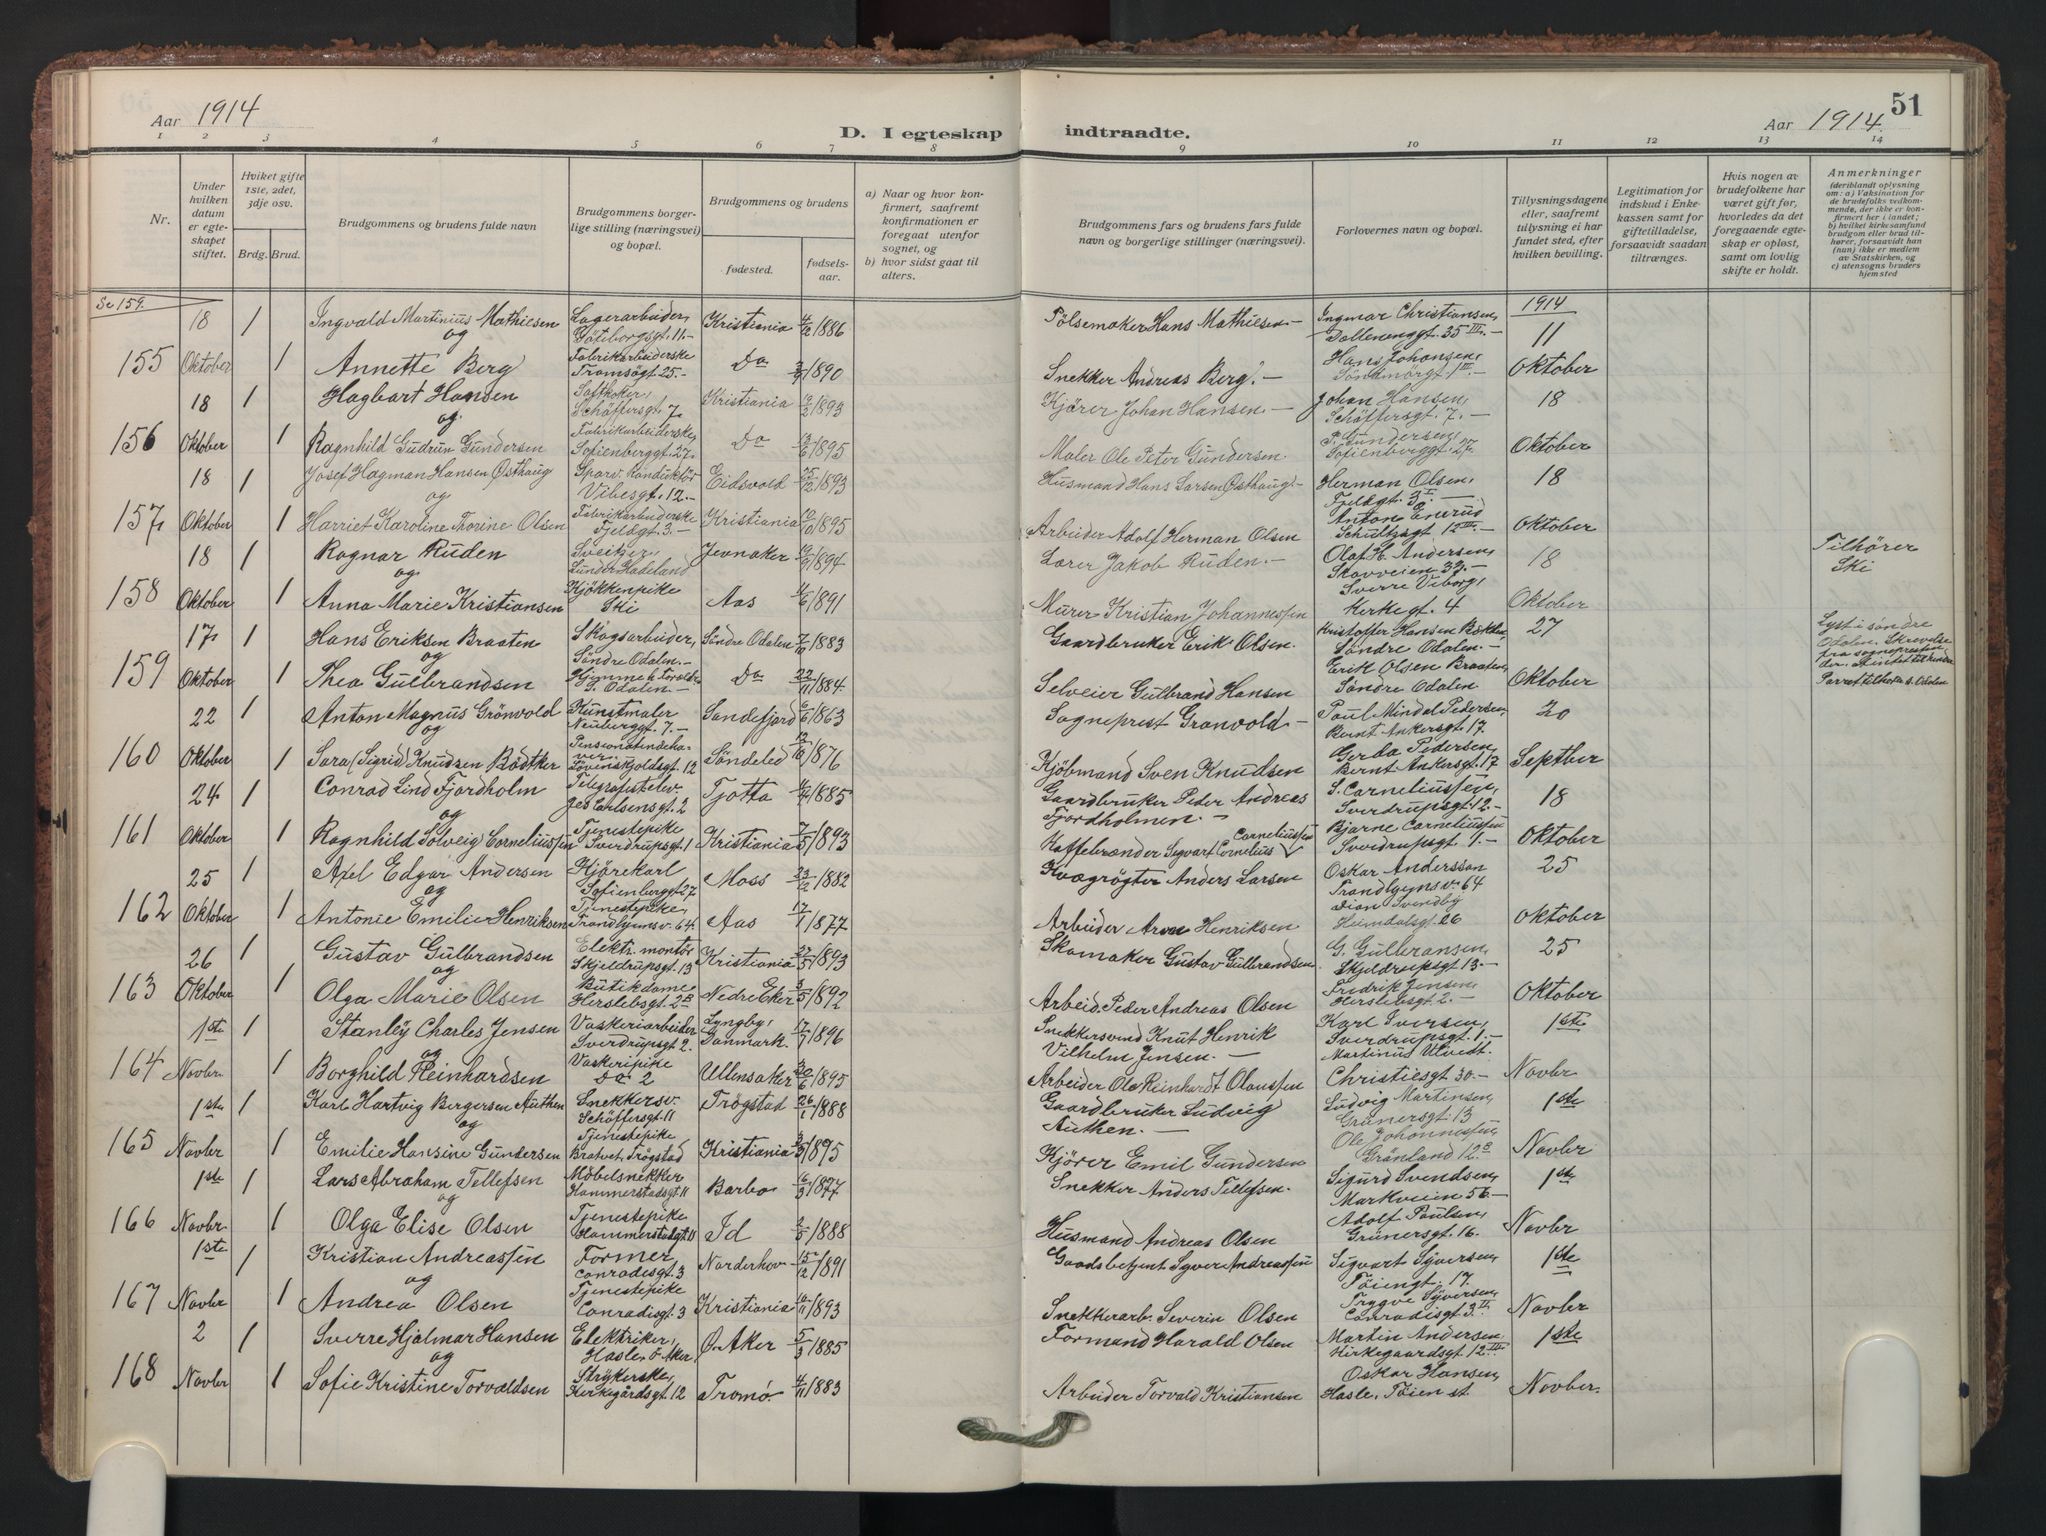 Aar 1914
D. I egteskap indtraadte.
Aar 1914.
51
1 2 3 4 5 6 7 8 9 10 11 12 13 14
Nr.
Under hvilken datum er egteskapet stiftet.
Hviket gifte 1ste, 2det, 3dje osv.
Brdg. Brud.
Brudgommens og brudens fulde navn
Brudgommens borgerlige stilling (næringsvei) og bopæl.
Brudgommens og brudens
fødested.
fødselsaar.
a) Naar og hvor konfirmert, saafremt konfirmationen er foregaat utenfor sognet, og
b) hvor sidst gaat til alters.
Brudgommens fars og brudens fars fulde navn og borgerlige stillinger (næringsvei).
Forlovernes navn og bopæl.
Tillysningsdagene eller, saafremt tillysning ei har fundet sted, efter hvilken bevilling.
Legitimation for indskud i Enkekassen samt for giftetilladelse, forsaavidt saadan tiltrænges.
Hvis nogen av brudefolkene har været gift før, hvorledes da det foregaaende egteskap er opløst, samt om lovlig skifte er holdt.
Anmerkninger
(deriblandt oplysning om: a) Vaksination for de brudefolks vedkommende, der ikke er konfirmert her i landet; b) hvilket kirkesamfund brudgom eller brud tilhører, forsaavidt han (hun) ikke er medlem av Statskirken, og c) utensogns bruders hjemsted
Se 159.
18 1 Ingvald Martinius Mathiesen Lagerarbeider, Göteborgsgt. 11.- Kristiania 4/2 1886 Pölsemaker Hans Mathiesen.- Ingmar Christiansen, Dallenenggt. 35 III.- 1914 11
og
155 Oktober 1 Annette Berg Fabrikarbeiderske Tromsögt. 25.- Do 3/9 1890 Snekker Andreas Berg.- Hans Johansen, Söndmörgt. 1 III.- Oktober
18 1 Hagbart Hansen Saftkoker, Schöffersgt. 7 Kristiania 19/2 1893 Kjörer Johan Hansen.- Johan Hansen, Schöffersgt. 7.- 18
og
156 Oktober 1 Ragnhild Gudrun Gundersen Fabrikarbeiderske, Sofienberggt. 27.- Do 13/6 1895 Maler Ole Peter Gundersen. P. Gundersen, Sofienberggt. 27. Oktober
18 1 Josef Hagman Hansen Östhaug Sparv. konduktör Vibesgt. 12.- Eidsvold 25/12 1893 Husmand Hans Larsen Östhaug.- Herman Olsen, Fjeldgt. 3 I.- 18
og
157 Oktober 1 Harriet Karoline Thorine Olsen Fabrikarbeiderske Fjeldgt. 3.- Kristiania 1895 Arbeider Adolf Herman Olsen Anton Enerud Schultzsgt. 12 III.- Oktober
18 1 Ragnar Ruden Sveitser, Lunder Hadeland Jevnaker 19/9 1894 Lærer Jakob Ruden.- Olaf H. Andersen, Skovveien 33.- 18 Tilhörer Ski
og
158 Oktober 1 Anna Marie Kristiansen Kjökkenpike Ski Aas 1/6 1891 Murer Kristian Johannessen Sverre Viborg, Kirkegt. 4 Oktober
17 1 Hans Eriksen Braaten Skogsarbeider, Söndre Odalen.- Söndre Odalen 7/10 1883 Gaardbruker Erik Olsen. Kristoffer Hansen Söndre Odalen.- 27 Lyst i söndre Odalen. Skrivelse fra sognepresten
og
159 Oktober 1 Thea Gulbrandsen Hjemme h. foreldre S. Odalen.- Do 22/11 1884. Selveier Gulbrand Hansen Erik Olsen Braaten, Söndre Odalen Oktober
22 1 Anton Magnus Grönvold Kunstmaler Neuberggt. 7.- Sandefjord 6/6 1863 Sogneprest Grønvold.- Paul Mindal Pedersen, Bernt Ankersgt. 17 20
og
160 Oktober 1 Sara (Sigrid) Knudsen Bödtker Pensionatindehaver, Lövenskjoldsgt. 12 Söndeled 12/10 1876 Kjöbmand Sven Knudsen Gerda Pedersen, Bernt Ankersgt. 17 Septber
24 1 Conrad Lind Fjordholm Telegrafistelev. Jes Carlsensgt. 2 Tjotta 4/4 1885 Gaardbruker Peder Andreas Fjordholmen.- S. Corneliussen, Sverdrupsgt. 12.- 18
og
161 Oktober 1 Ragnhild Solveig Corneliussen Tjenestepike Sverdrupsgt. 1 Kristiania 7/5 1893 Kaffebrænder Sigvart Cornelius Corneliussen Bjarne Corneliussen Sverdrupsgt. 1.- Oktober
25 1 Axel Edgar Andersen Kjörekarl Sofienberggt. 27 Moss 23/12 1882 Kvægrögter Anders Larsen Oskar Andersson Trondhjemsv. 64 25
og
162 Oktober 1 Antonie Emilie Henriksen Tjenestepike, Trondhjemsv. 64. Aas 17/1 1877 Arbeider Arne Henriksen Dion Svendby Heimdalsgt. 26 Oktober
26 1 Gustav Gulbrandsen Elektr. montör Skjeldrupsgt. 13 Kristiania 27/5 1893 Skomaker Gustav Gulbrandsen G. Gulbransen, Skjeldrupsgt. 13.- 25
og
163 Oktober 1 Olga Marie Olsen Butikdame Herslebsgt. 2 B Nedre Eker 3/5 1892 Arbeid. Peder Andreas Olsen Fredrik Jensen, Herslebsgt. 2.- Oktober
1ste 1 Stanley Charles Jensen Vaskeriarbeider Sverdrupsgt 2. Lyngby, Danmark. 17/7 1896 Snekkersvend Knut Henrik Vilhelm Jensen.- Karl Iversen, Sverdrupsgt. 1.- 1ste
og
164 Novbr. 1 Borghild Reinhardsen Vaskeripike Do 2 Ullensaker 20/6 1895 Arbeider Ole Reinhardt Olaussen Martinus Ulvedt. Christiesgt 30.- Novbr
1ste 1 Karl Hartvig Bergersen Authen Snekkersv. Schöffersgt. 11 Trögstad 26/1 1888 Gaardbruker Ludvig Authen.- Ludvig Martinsen, Grünersgt. 13 1ste
og
165 Novbr 1 Emilie Hansine Gundersen Tjenestepike Bratvet, Trögstad Kristiania 1895 Kjörer Emil Gundersen Ole Johannessen, Grönland 12 B Novbr
1ste 1 Lars Abraham Tellefsen Möbelsnekker Hammerstadsgt. 11 Barbo 16/3 1877 Snekker Anders Tellefsen. Sigurd Svendsen, Markveien 56.- 1ste
og
166 Novbr 1 Olga Elise Olsen Tjenestepike Hammerstadgt. 11 Id 2/5 1888 Husmand Andreas Olsen Adolf Paulsen, Grünersgt. 16. Novbr
1ste 1 Kristian Andreassen Former, Conradisgt. 3 Norderhov 15/12 1891 Godsbetjent Syver Andreassen Sigvart Syversen, Töiengt. 17. 1ste
og
167 Novbr 1 Andrea Olsen Tjenestepike Conradisgt. 3 Kristiania 10/11 1893 Snekkerarb. Severin Olsen Trygve Syversen, Conradisgt. 3 II Novbr
2 1 Sverre Hjalmar Hansen Elektriker, Hasle, Ö. Aker, Ø. Aker 5/3 1885 Formand Harald Olsen Martin Andersen, Kirkegaardsgt. 12 III 1ste
og
168 Novbr 1 Sofie Kristine Torvaldsen Strykerske, Kirkegårdsgt. 12 Tromö 4/11 1883 Arbeider Torvald Kristiansen Oskar Hansen, Hasle, Töien st. Novber.